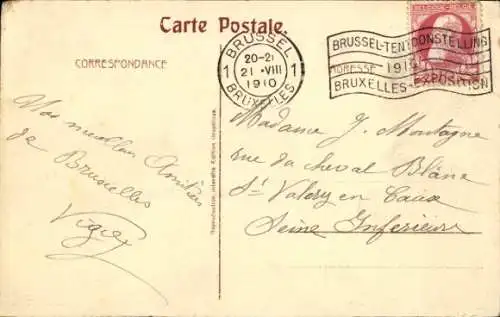 Carte Postale.
CORRESPONDANCE
BELGIQUE-BELGIË
BRUSSEL
20-21
1 21 ·VIII 1
1910
BRUXELLES
BRUSSEL-TENTOONSTELLING
1910
BRUXELLES-EXPOSITION
Nos meilleures Amitiés
de Bruxelles
Madame J. Montagne
rue du cheval Blanc
St Valery en Caux
Seine Inférieure